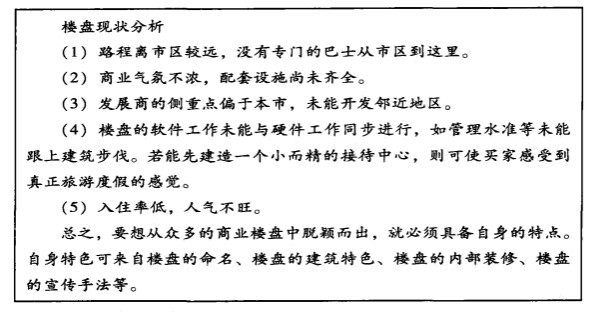 楼盘现状分析
(1) 路程离市区较远，没有专门的巴士从市区到这里。
(2) 商业气氛不浓，配套设施尚未齐全。
(3) 发展商的侧重点偏于本市，未能开发邻近地区。
(4) 楼盘的软件工作未能与硬件工作同步进行，如管理水准等未能
跟上建筑步伐。若能先建造一个小而精的接待中心，则可使买家感受到
真正旅游度假的感觉。
(5) 入住率低，人气不旺。
总之，要想从众多的商业楼盘中脱颖而出，就必须具备自身的特点。
自身特色可来自楼盘的命名、楼盘的建筑特色、楼盘的内部装修、楼盘
的宣传手法等。